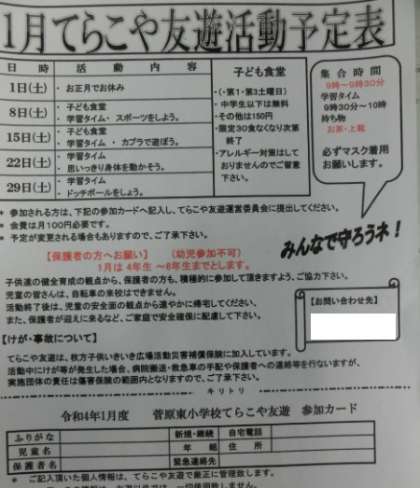 1月てらこや友遊活動予定表
日　時　活　動　内　容
1日(土)　・お正月でお休み
8日(土)　・子ども食堂
・学習タイム・スポーツをしよう。
15日(土)　・子ども食堂
・学習タイム・カプラで遊ぼう。
22日(土)　・学習タイム
・思いっきり身体を動かそう。
29日(土)　・学習タイム
・ドッチボールをしよう。
子ども食堂
・(・第1・第3土曜日)
・中学生以下は無料
・その他は150円
・限定30食なくなり次第
終了
・アレルギー対策はして
おりませんのでご留意
下さい。
集合時間
9時～9時30分
学習タイム
9時30分～10時
持ち物
お茶・上靴
必ずマスク着用
お願いします。
＊ 参加される方は、下記の参加カードへ記入し、てらこや友遊運営委員会に提出してください。
＊ 会費は月100円必要です。
＊ 予定が変更される場合もありますので、ご了承下さい。
みんなで守ろうネ！
【保護者の方へお願い】　(幼児参加不可)
1月は 4年生 ～6年生までとします。
子供達の健全育成の観点から、保護者の方も、積極的に参加して頂きますよう、ご協力下さい。
児童の皆さんは、自転車の来校はできません。
活動終了後は、児童の安全面の観点から速やかに帰宅してください。
また、保護者が迎えに来るなど、ご家庭で安全確保に配慮して下さい。
【お問い合わせ先】
【けが・事故について】
てらこや友遊は、枚方子供いきいき広場活動災害補償保険に加入しています。
活動中にけが等が発生した場合、病院搬送・救急車の手配や保護者への連絡等を行ないますが、
実施団体の責任は傷害保険の範囲内となりますので、ご了承下さい。
キリトリ
令和4年1月度　菅原東小学校てらこや友遊　参加カード
ふりがな　新規・継続　自宅電話
児童名　年　組　住　所
保護者名　緊急連絡先
＊ ご記入頂いた個人情報は、てらこや友遊で厳正に管理致します。